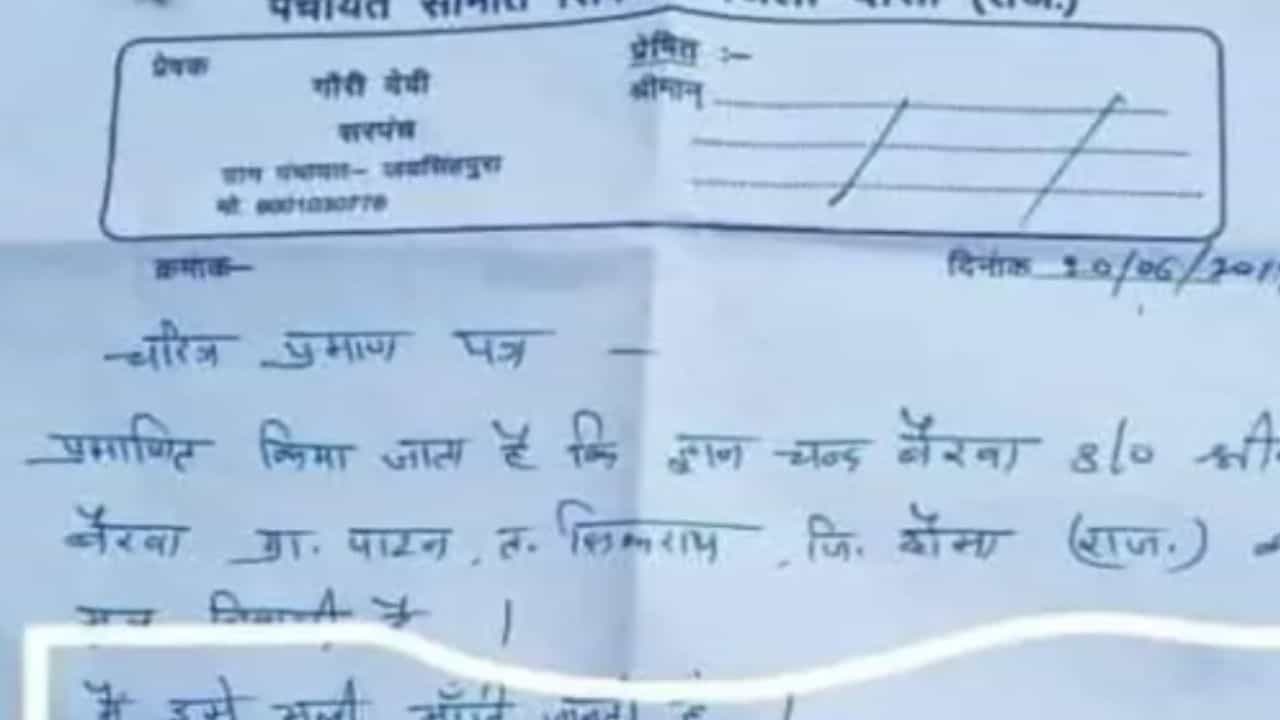 पंचायत समिति सिक जिला दौसा (राज.)
प्रेषक
गौरी देवी
सरपंच
ग्राम पंचायत– जयसिंहपुरा
मो. 9001030778
प्रेषित :–
श्रीमान्
क्रमांक–
दिनांक 10/06/201
चरित्र प्रमाण पत्र –
प्रमाणित किया जाता है कि ज्ञान चन्द बैरवा S/o श्री
बैरवा ग्रा. पाटन, त. सिकराय, जि. दौसा (राज.)
मूल निवासी है ।
मैं इसे भली भाँति जानता हूं ।